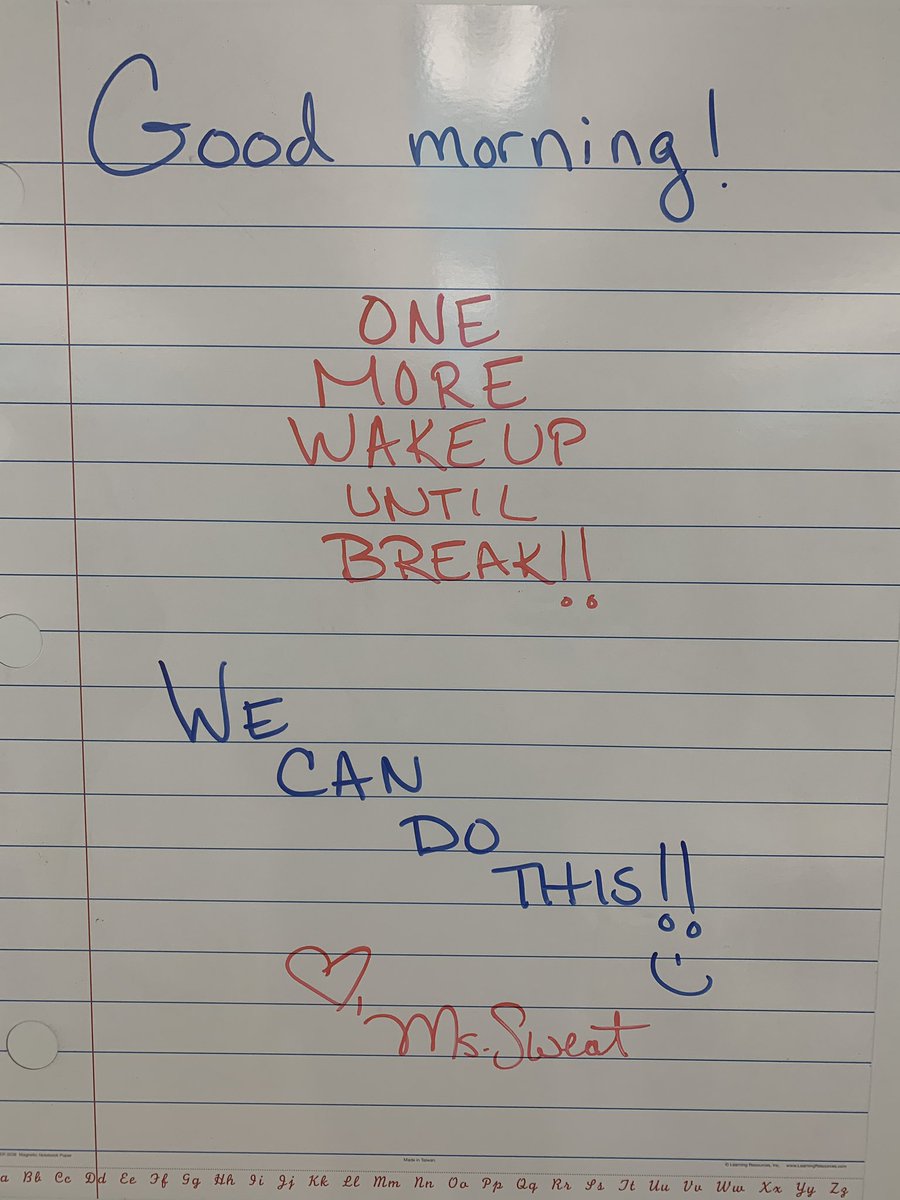 Good morning!
ONE
MORE
WAKE UP
UNTIL
BREAK!!
WE
CAN
DO
THIS!!
Ms. Sweat
Magnetic Notebook Paper
Made in Taiwan
© Learning Resources, Inc. www.LearningResources.com
a Bb Cc Dd Ee Ff Gg Hh Ii Jj Kk Ll Mm Nn Oo Pp Qq Rr Ss Tt Uu Vv Ww Xx Yy Zz